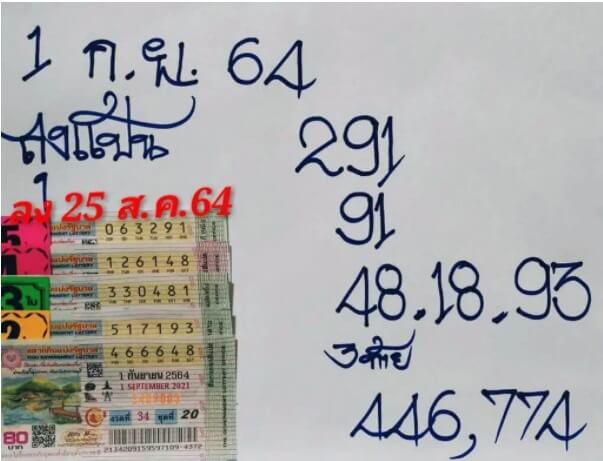 1 ก.ย. 64
291
91
ลง 25 ส.ค.64
48.18.93
3 ท้าย
446,774
063291
126148
330481
517193
466648
1 กันยายน 2564
1 SEPTEMBER 2021
งวดที่ 34 ชุดที่ 20
80
บาท
2134209159597109-4372